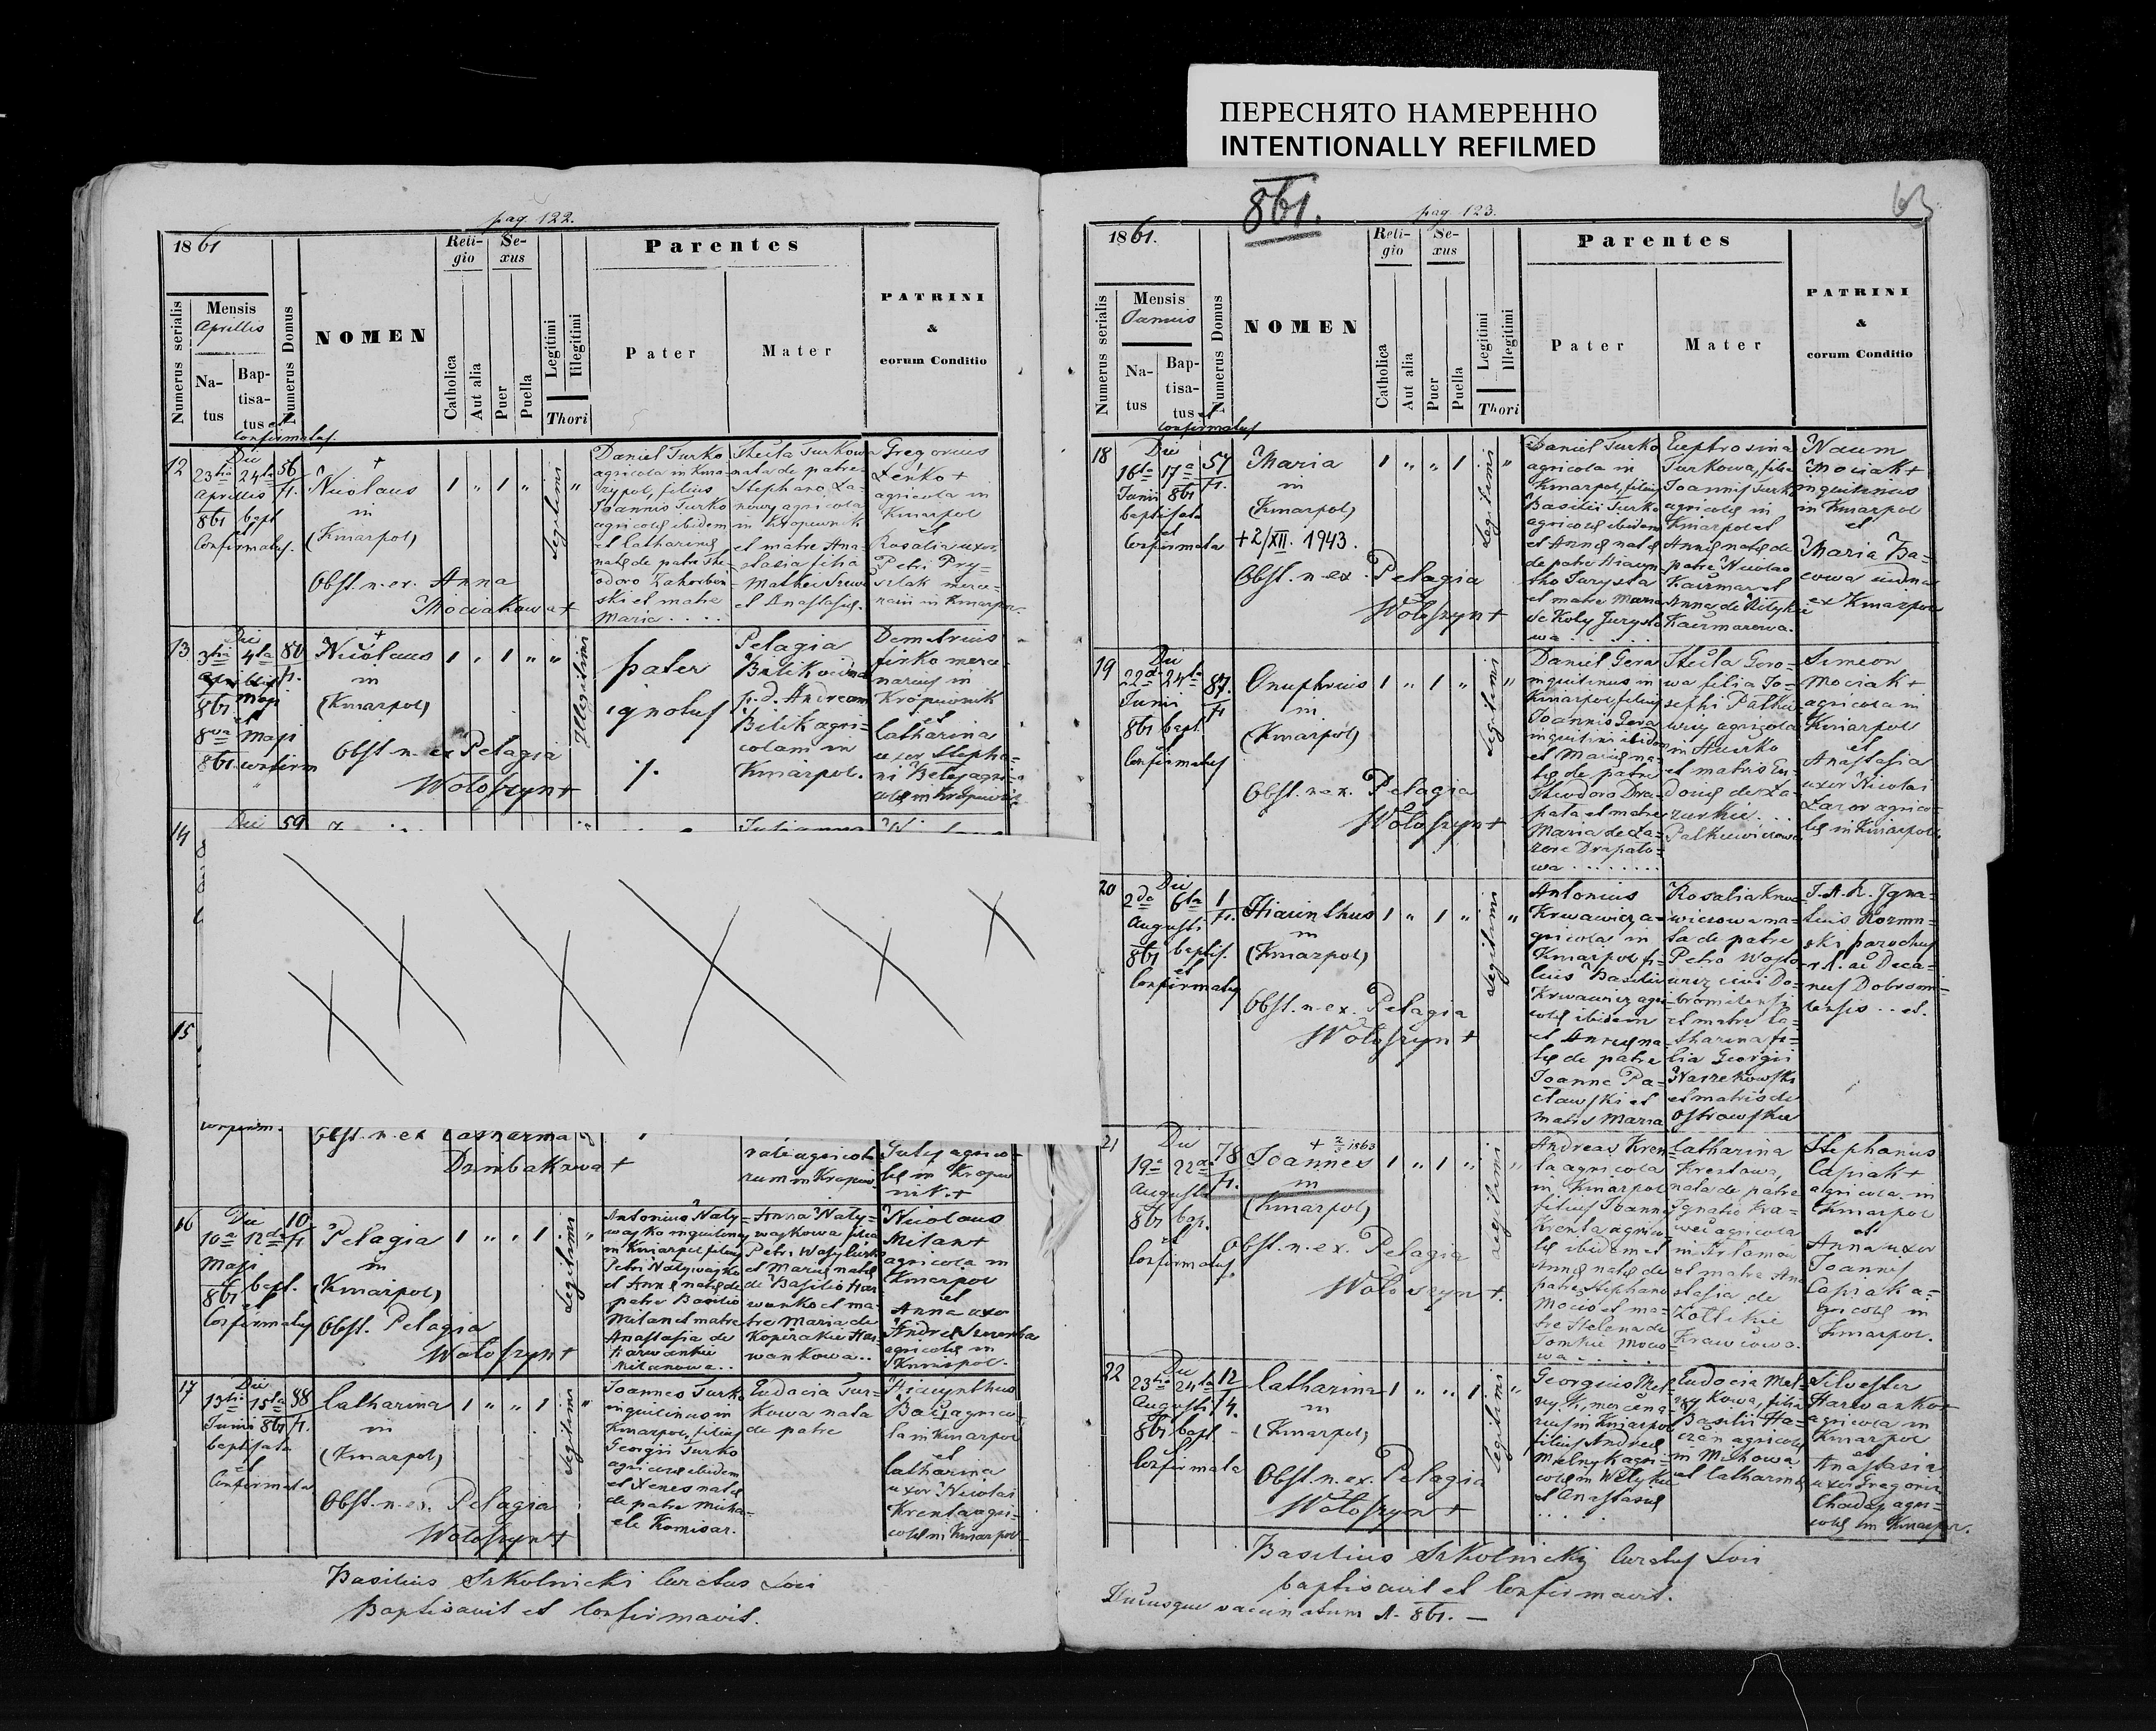 ПЕРЕСНЯТО НАМЕРЕННО
INTENTIONALLY REFILMED
pag. 122.
1861
Numerus serialis
Mensis
Aprillis
Na-
tus
Bap-
tisa-
tus et
confirmatus.
Numerus Domus
NOMEN
Reli-
gio
Catholica
Aut alia
Se-
xus
Puer
Puella
Legitimi
Illegitimi
Thori
Parentes
Pater
Mater
PATRINI
&
eorum Conditio
12
Die
23tia 24ta
Aprillis
861 bapt
et
Confirmatus.
56
+
Nicolaus
in
(Kniazpol)
Obst. n. ex. Anna
Mociakowa +
1 " 1 "
Legitimi
"
Daniel Turko
agricola in Knia-
zypol, filius
Joannis Turko
agricolę ibidem
et Catharinę
natę de patre The-
odoro
ski et matre
Maria . . . .
Thecla Turkowa
nata de patre
Stephano La-
agricola
in Kropiwnik
et matre Ana-
stasia filia
Mathei
et Anastasię.
Gregorius
Leńko +
agricola in
Kniazpol
et
Rosalia uxor
Petri Pry-
szlak merce-
narii in Kniazpol.
13
Die
3tia 4ta
Maji
861
et
8va Maji
861 confirm
80
+
Nicolaus
in
(Kniazpol)
Obst. n. ex Pelagia
Wołoszyn +
1 " 1 " "
Illegitimi
pater
ignotus
./.
Pelagia
Bilik vidua
p. d. Andream
Bilik agri-
colam in
Kniazpol.
Demetrius
Firko merce-
narius in
Kropiwnik
et
Catharina
uxor Stepha-
ni Belej agri-
colę in Kropiwnik.
14
Die
59
Julianna
15
confirm.
Obst. n. ex Catharina
Dembakowa +
agricola
rum in Kropiw
agrico-
lę in Kropiw
nik. +
16
Die
10a 12da
Maji
861 bapt.
et
Confirmatus
10
Pelagia
in
(Kniazpol)
Obst. Pelagia
Wołoszyn +
1 " " 1
Legitimi
"
Antonius Naty-
wajko inquilinus
in Kniazpol filius
Petri Natywajko
et Annę natę de
patre Basilio
Milan et matre
Anastasia de
Harwankie
Milanowa . .
Anna Naty-
wajkowa filia
Petri
et Marię natę
de Basilio Har
wanko et ma-
tre Maria de
Har
wankowa . .
Nicolaus
Milan +
agricola in
Kniazpol
et
Anna uxor
Andreę
agricolę in
Kniazpol.
17
Die
13tia 15ta
Junii 861
baptisata
et
Confirmata
38
Catharina
in
(Kniazpol)
Obst. n. ex. Pelagia
Wołoszyn +
1 " " 1
Legitimi
"
Joannes Turko
inquilinus in
Kniazpol, filius
Georgii Turko
agricolę ibidem
et Xenes natę
de patre Micha-
ele Komisar.
Eudocia Tur-
kowa nata
de patre
Hiacynthus
agrico-
la in Kniazpol
et
Catharina
uxor Nicolai
Krenta agri-
colę in Kniazpol
Basilius Szkolnicki Curatus Loci
Baptisavit et Confirmavit.
861.
pag. 123.
63
1861.
Numerus serialis
Mensis
Junius
Na-
tus
Bap-
tisa-
tus et
confirmatus
Numerus Domus
NOMEN
Reli-
gio
Catholica
Aut alia
Se-
xus
Puer
Puella
Legitimi
Illegitimi
Thori
Parentes
Pater
Mater
PATRINI
&
eorum Conditio
18
Die
16ta 17a
Junii 861
baptisata
et
Confirmata
57
Maria
in
(Kniazpol)
+ 2/XII. 1943.
Obst. n. ex. Pelagia
Wołoszyn +
1 " " 1
Legitimi
"
Daniel Turko
agricola in
Kniazpol, filius
Basilii Turko
agricolę ibidem
et Annę natę
de patre Hiacyn-
tho Jurysta
et matre Maria
de Koly Jurysto
wa . . . .
Euphrosina
Turkowa, filia
Joannis Turko
agricolę in
Kniazpol et
Annę natę de
patre Nicolao
Kaczmar et
Anna de
Kaczmarowa.
Naum
Mociak +
inquilinus
in Kniazpol
et
Maria Ha-
cowa vidua
ex Kniazpol
19
Die
22da 24ta
Junii
861 bapt.
et
Confirmatus
87.
Onuphrius
in
(Kniazpol)
Obst. n. ex. Pelagia
Wołoszyn +
1 " 1 "
Legitimi
"
Daniel Gera
inquilinus in
Kniazpol filius
Joannis Gera
inquilini ibidem
et Marię na-
tę de patre
Theodoro Dra-
pata et matre
Maria de La-
zore Drapato-
wa . . . . . . .
Thecla Gero-
wa filia Jo-
sephi Patkie-
wicz agricola
in Huczko
et matris Eu-
doxię de La-
zurkie . . .
Patkiewiczowa
Simeon
Mociak +
agricola in
Kniazpol
et
Anastasia
uxor Nicolai
Lazor agrico-
lę in Kniazpol.
20
Die
2da 6ta
Augusti
861 baptis.
et
Confirmatus
1
Hiacinthus
in
(Kniazpol)
Obst. n. ex. Pelagia
Wołoszyn +
1 " 1 "
Legitimi
"
Antonius
Krwawicz a-
gricola in
Kniazpol fi-
lius Basilii
Krwawicz agri-
colę ibidem
et Annę na-
tę de patre
Joanne Pa-
cławski et
matre Maria
Rosalia Krwa-
wiczowa na-
ta de patre
Petro Wojto-
wicz civi Do-
bromilensi
et matre Ca-
tharina fi-
lia Georgii
et matris de
Ostrowskie
J. A. R. Igna-
tius
ski parochus
r. l. ac Deca-
nus Dobromi-
lensis . . et.
21
Die
19a 22a
Augusti
861 bap.
et
Confirmatus
78
+ 2/3 1863
Joannes
in
(Kniazpol)
Obst. n. ex. Pelagia
Wołoszyn +.
1 " 1 "
Legitimi
"
Andreas Kren-
ta agricola
in Kniazpol
filius Joannis
Krenta agrico
lę ibidem et
Annę natę de
patre Stephano
Mocio et ma-
tre Helena de
Tomkie Mocio
wa . . . .
Catharina
Krentowa,
nata de patre
Ignatio Kra-
wiec agricola
in
et matre Ana
stasia de
Krawcowa.
Stephanus
Capiak +
agricola in
Kniazpol
et
Anna uxor
Joannis
Capiak a-
gricolę in
Kniazpol.
22
Die
23tia 24ta
Augusti
861 bapt.
et
Confirmata
12
Catharina
in
(Kniazpol)
Obst. n. ex. Pelagia
Wołoszyn +
1 " " 1
Legitimi
"
Georgius Mel-
nyk, mercena-
rius in Kniazpol
filius Andreę
Melnyk agri-
colę in
et Anastasię
. . . . .
Eudocia Mel-
nykowa, filia
Basilii Ha-
czan agricolę
in Michowa
et Catharinę
Silvester
Harwanko +
agricola in
Kniazpol
et
Anastasia
uxor Gregorii
agri-
colę in Kniazpol.
Basilius Szkolnicki Curatus Loci
baptisavit et Confirmavit.
Hucusque vaccinatum A. 861. —